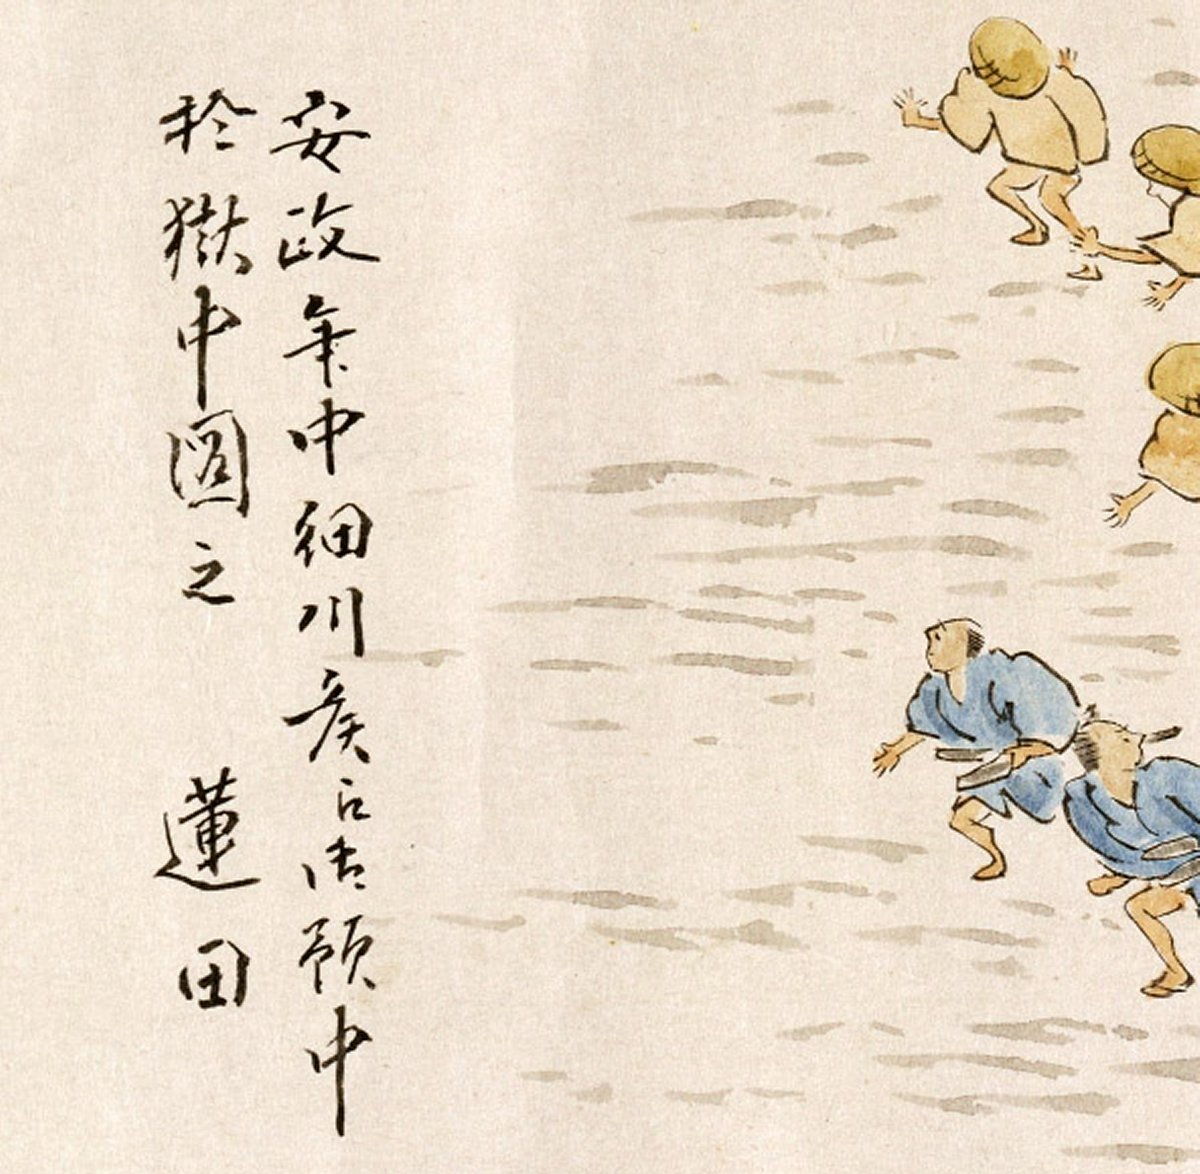 安政年中細川矦ニ御預中
於獄中圖之 蓮田